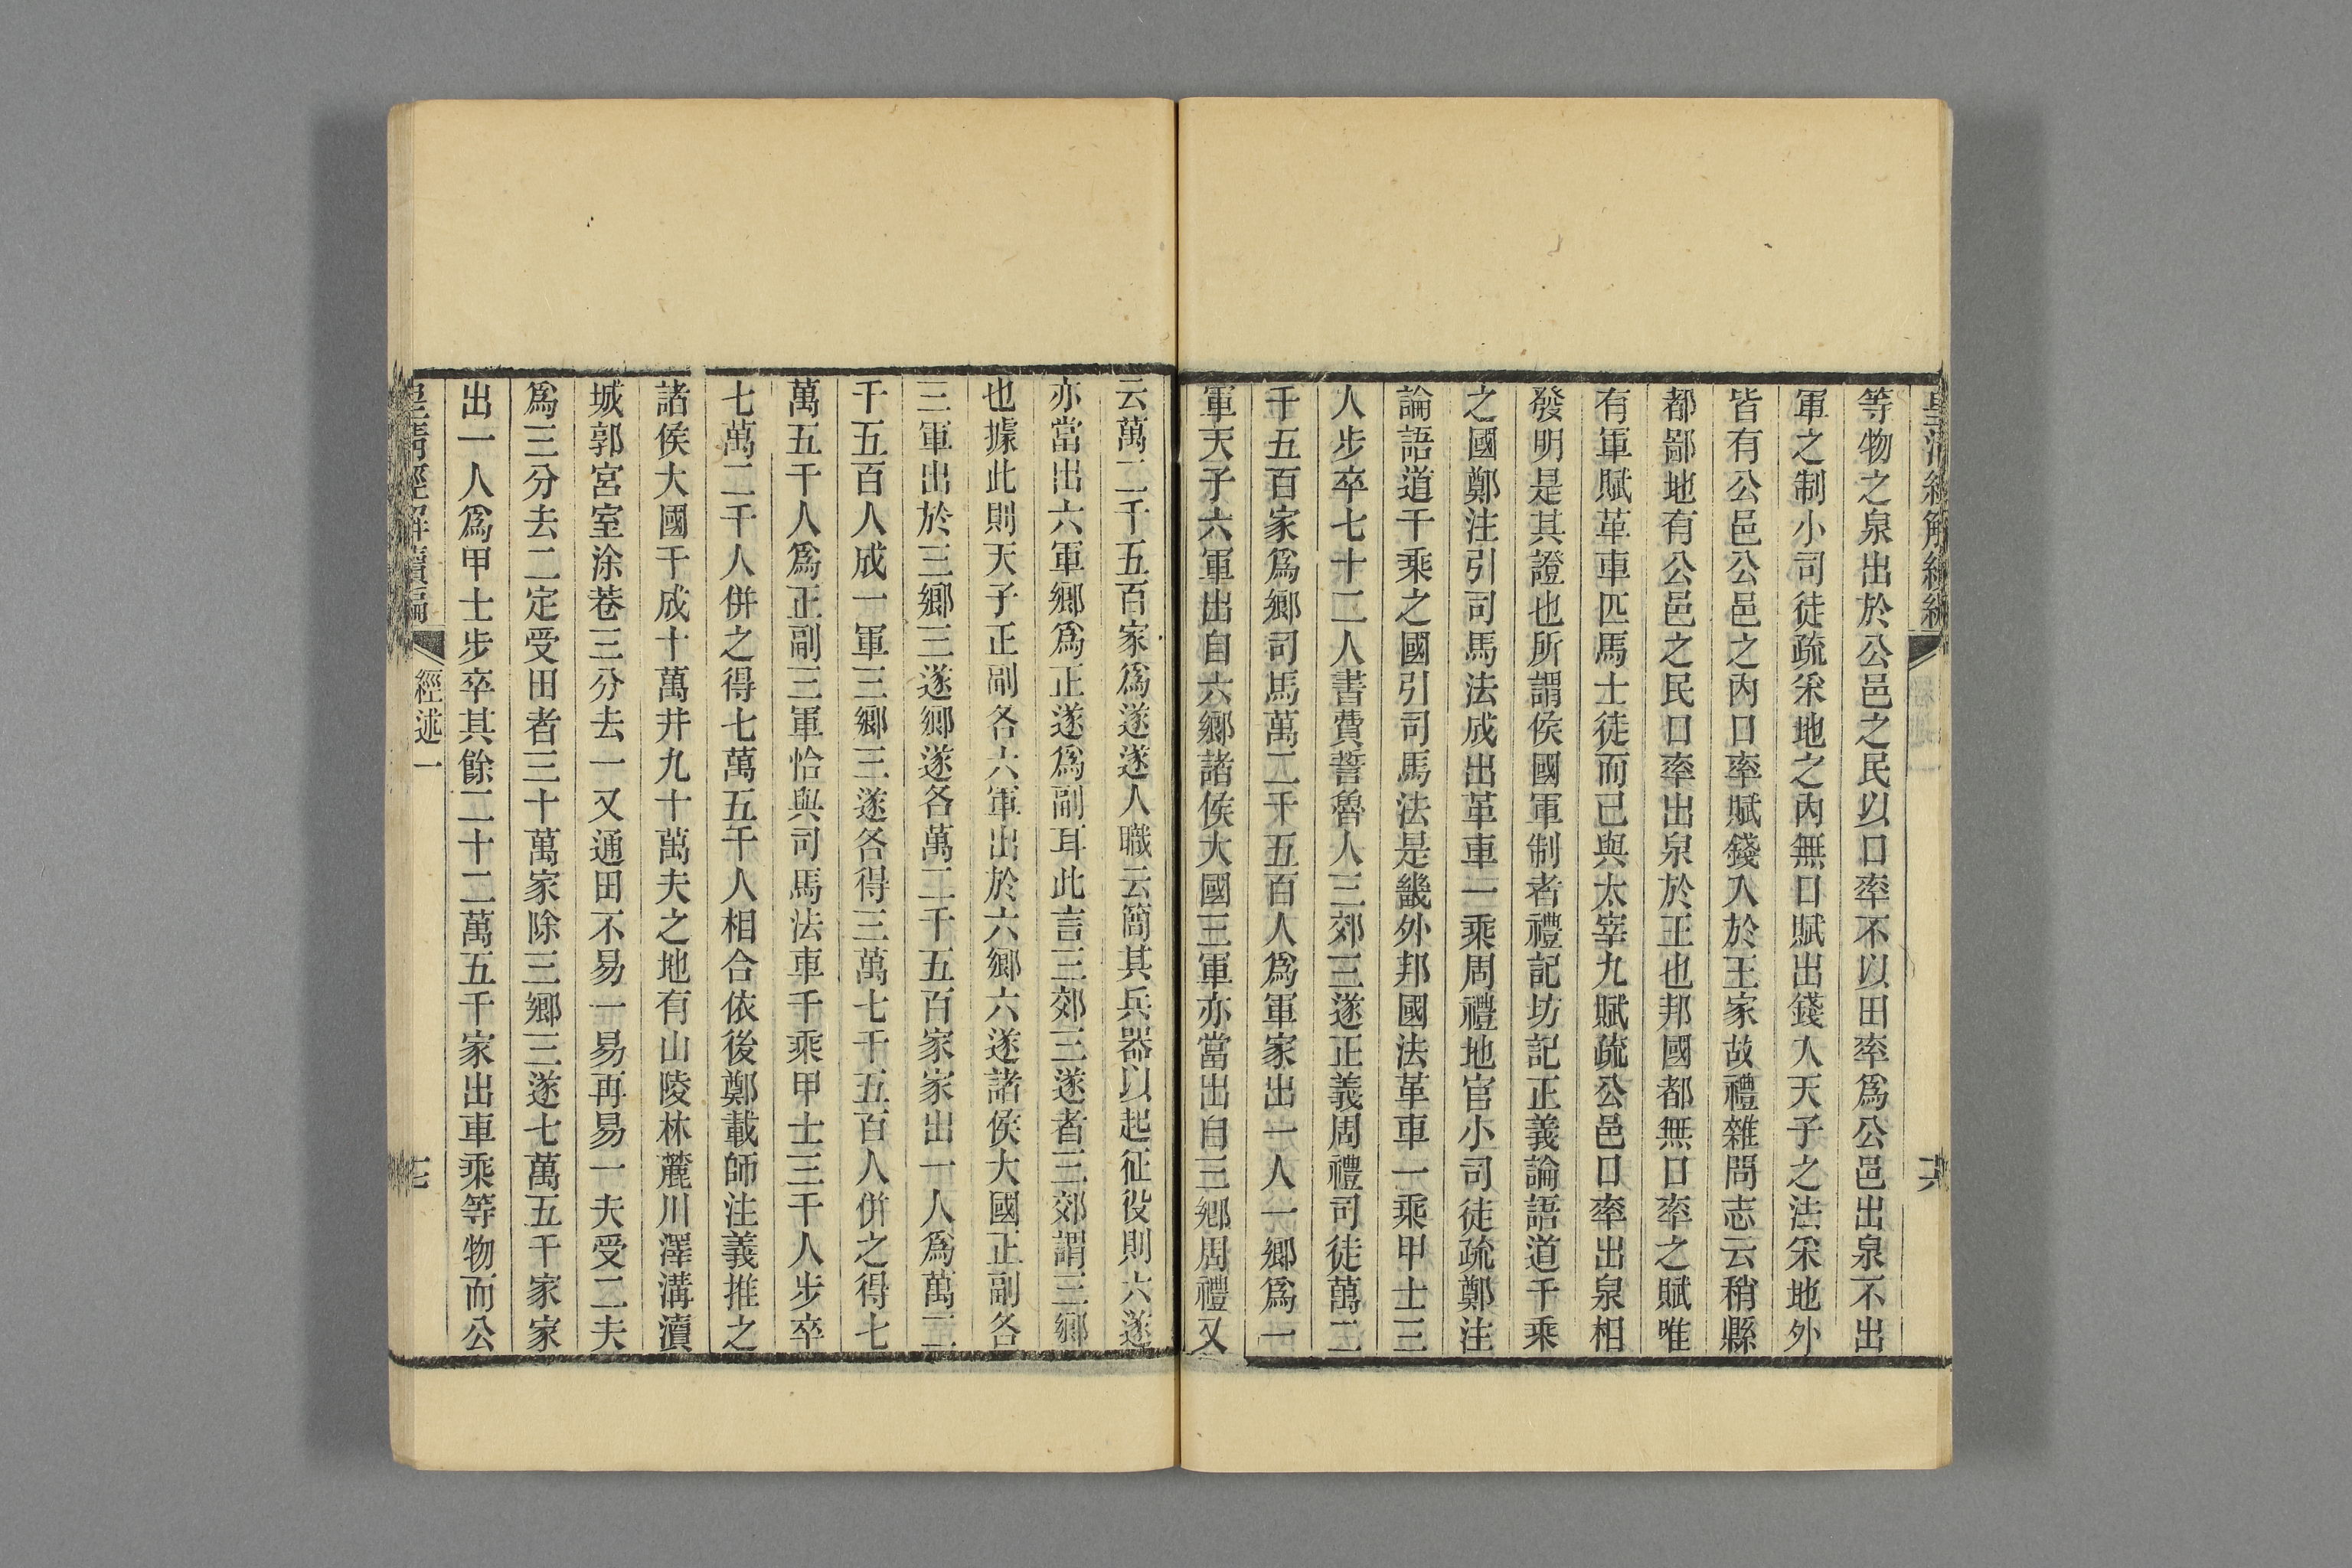 等物之泉出於公邑之民以口率不以田率爲公邑出泉不出
軍之制小司徒疏釆地之內無口賦出錢入天子之法釆地外
皆有公邑公邑之內口率賦錢入於王家故禮雜問志云稍縣
都鄙地有公邑之民口率出泉於王也邦國都無口率之賦唯
有軍賦革車匹馬士徒而已與太宰九賦疏公邑口率出泉相
發明是其證也所謂侯國軍制者禮記坊記正義論語道千乘
之國鄭注引司馬法成出革車一乘周禮地官小司徒疏鄭注
論語道千乘之國引司馬法是畿外邦國法革車一乘甲士三
人步卒七十二人書費誓魯人三郊三遂正義周禮司徒萬二
千五百家爲鄉司馬萬二千五百人爲軍家出一人一鄉爲一
軍天子六軍出自六鄉諸侯大國三軍亦當出自三鄉周禮又
云萬二千五百家爲遂遂人職云簡其兵器以起征役則六遂
亦當出六軍鄉爲正遂爲副耳此言三郊三遂者三郊謂三鄉
也據此則天子正副各六軍出於六鄉六遂諸侯大國正副各
三軍出於三鄉三遂鄉遂各萬二千五百家家出一人爲萬二
千五百人成一軍三鄉三遂各得三萬七千五百人併之得七
萬五千人爲正副三軍恰與司馬法車千乘甲士三千人步卒
七萬二千人併之得七萬五千人相合依後鄭載師注義推之
諸侯大國千成十萬井九十萬夫之地有山陵林麓川澤溝瀆
城郭宮室涂巷三分去一又通田不易一易再易一夫受二夫
爲三分去二定受田者三十萬家除三鄉三遂七萬五千家家
出一人爲甲士步卒其餘二十二萬五千家出車乘等物而公
皇清經解續編
經述一